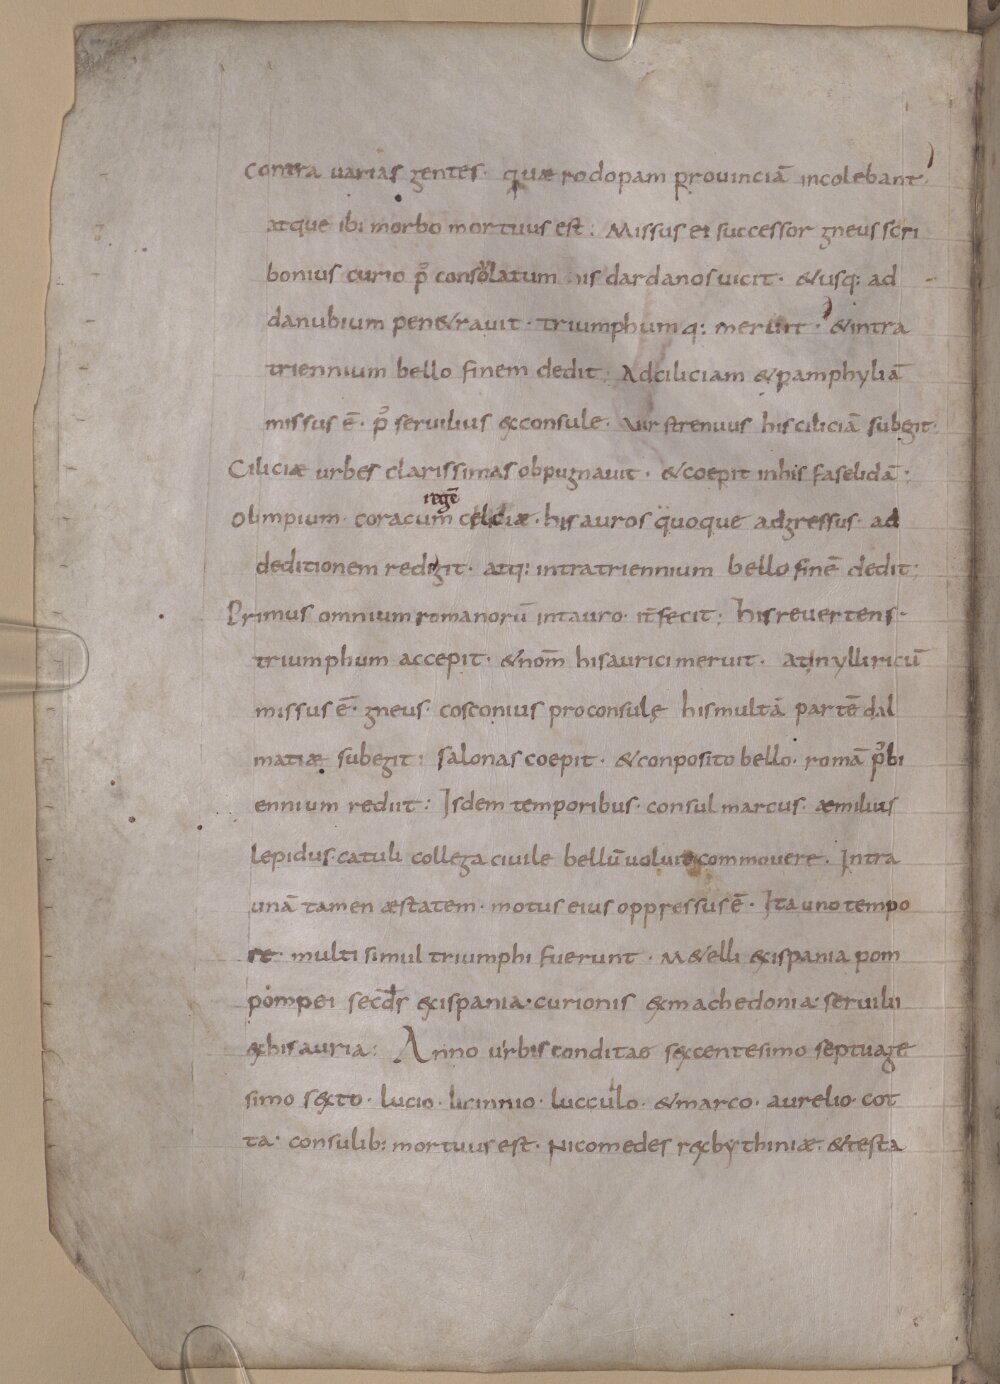 contra varias gentes · quæ rodopam prouinciā incolebant·
atque ibi morbo mortuus est : Missus ei successor gneus scri
bonius curio p̊ consolatum his dardanos uicit · &usq: ad
danubium pen&rauit · triumphumq: meruit · &intra
triennium bello finem dedit ; Adciliciam &pamphyliā
missus ē · p̊ seruilius exconsule · Uir strenuus his ciliciā subegit
Ciliciæ urbes clarissimas obpugnauit · &coepit inhis faselidā ;
regē
olimpium · coracum celiciæ · hisauros quoque adgressus · ad
deditionem redigit · atq: intratriennium bello finē dedit ;
Primus omnium romanorū intauro · iť fecit ; his reuertens ·
triumphum accepit · &nom̄ hisaurici meruit · at inylliricū
missus ē · gneus · cosconius proconsule his multā partē dal
matiæ subegit : salonas coepit · &conposito bello · romā p̊bi
ennium rediit : Isdem temporibus · consul marcus · æmilius
lepidus · catuli collega ciuile bellū uoluit commouere · Intra
unā tamen æstatem · motus eius oppressus ē · Ita uno tempo
re · multi simul triumphi fuerunt · M&elli exispania pom
pompei secds exispania · curionis exmachedonia · seruilii
exhisauria : Anno urbis conditae sexcentesimo septuage
simo sexto · lucio · licinnio · lucculo · &marco · aurelio · cot
ta · consulib: mortuus est · Nicomedes rex bythiniæ · &testa